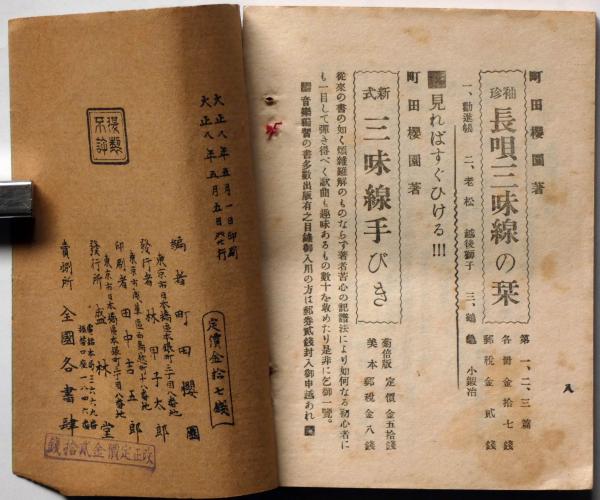 町田櫻園著
袖珍 長唄三味線の栞
第一、二、三篇
各冊金拾七錢
郵税金貳錢
一、勸進帳 二、老松 越後獅子 三、鶴亀 小鍛冶
見ればすぐひける!!!
町田櫻園著
新式 三味線手びき
菊倍版 定價金五拾錢
美本郵税金八錢
從來の書の如く煩雜難解のものならす著者苦心の記譜法により如何なる初心者に
も一目して彈き得べく歌曲も趣味あるもの數十を收めたり是非に乞御一覽。
音樂獨習の書多數出版有之目錄御入用の方は郵券貳錢封入御申越あれ
八
大正八年五月一日印刷
大正八年五月五日發行
定價金拾七錢
複製不許
編者 町田櫻園
東京市日本橋區本銀町二丁目八番地
發行者 林甲子太郎
印刷者 田中吉五郎
東京市日本橋區本銀町二丁目八番地
發行所 盛林堂
賣捌所 全國各書肆
改正定價金貳拾錢